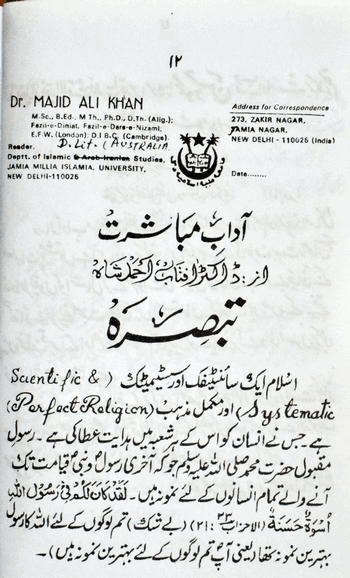 ۱۲
Dr. MAJID ALI KHAN
M.Sc., B.Ed., M Th., Ph.D., D.Th. (Alig.);
Fazil-e-Diniat, Fazil-e-Dars-e-Nizami;
E.F.W. (London); D I B C, (Cambridge).
D. Lit. (AUSTRALIA
Reader,
Deptt. of Islamic & Arab-Iranian Studies,
JAMIA MILLIA ISLAMIA, UNIVERSITY,
NEW DELHI-110025
Address for Correspondence
273, ZAKIR NAGAR,
JAMIA NAGAR,
NEW DELHI - 110025 (India)
Date........
آدابِ مباشرت
از: ڈاکٹر آفتاب احمد شاہ
تبصرہ
اسلام ایک سائنٹیفک اور سسٹیمیٹک (Scientific &
Systematic) اور مکمل مذہب (Perfect Religion)
ہے۔ جس نے انسان کو اس کے ہر شعبہ میں ہدایت عطا کی ہے۔ رسول
مقبول حضرت محمد صلی اللہ علیہ وسلم جو کہ آخری رسول و نبی قیامت تک
آنے والے تمام انسانوں کے لئے نمونہ ہیں۔ لَقَدْ كَانَ لَكُمْ فِيْ رَسُوْلِ اللّٰهِ
اُسْوَةٌ حَسَنَةٌ (الاحزاب ۳۳: ۲۱) (بے شک) تم لوگوں کے لئے اللہ کا رسول
بہترین نمونہ تھا یعنی آپ تم لوگوں کے لئے بہترین نمونہ ہیں)۔